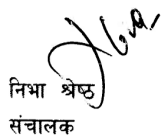 निभा श्रेष्ठ
संचालक